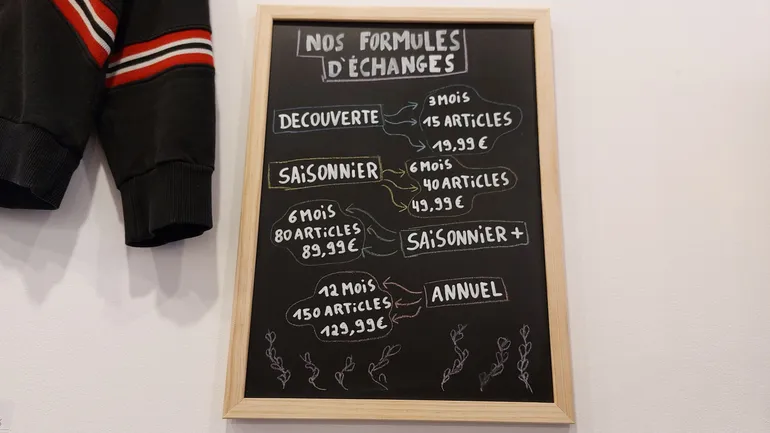 NOS FORMULES
D'ÉCHANGES
DECOUVERTE
3 MOIS
15 ARTICLES
19,99 €
SAiSONNiER
6 MOiS
40 ARTiCLES
49,99 €
6 MOiS
80 ARTiCLES
89,99 €
SAiSONNiER +
12 MOiS
150 ARTiCLES
129,99 €
ANNUEL